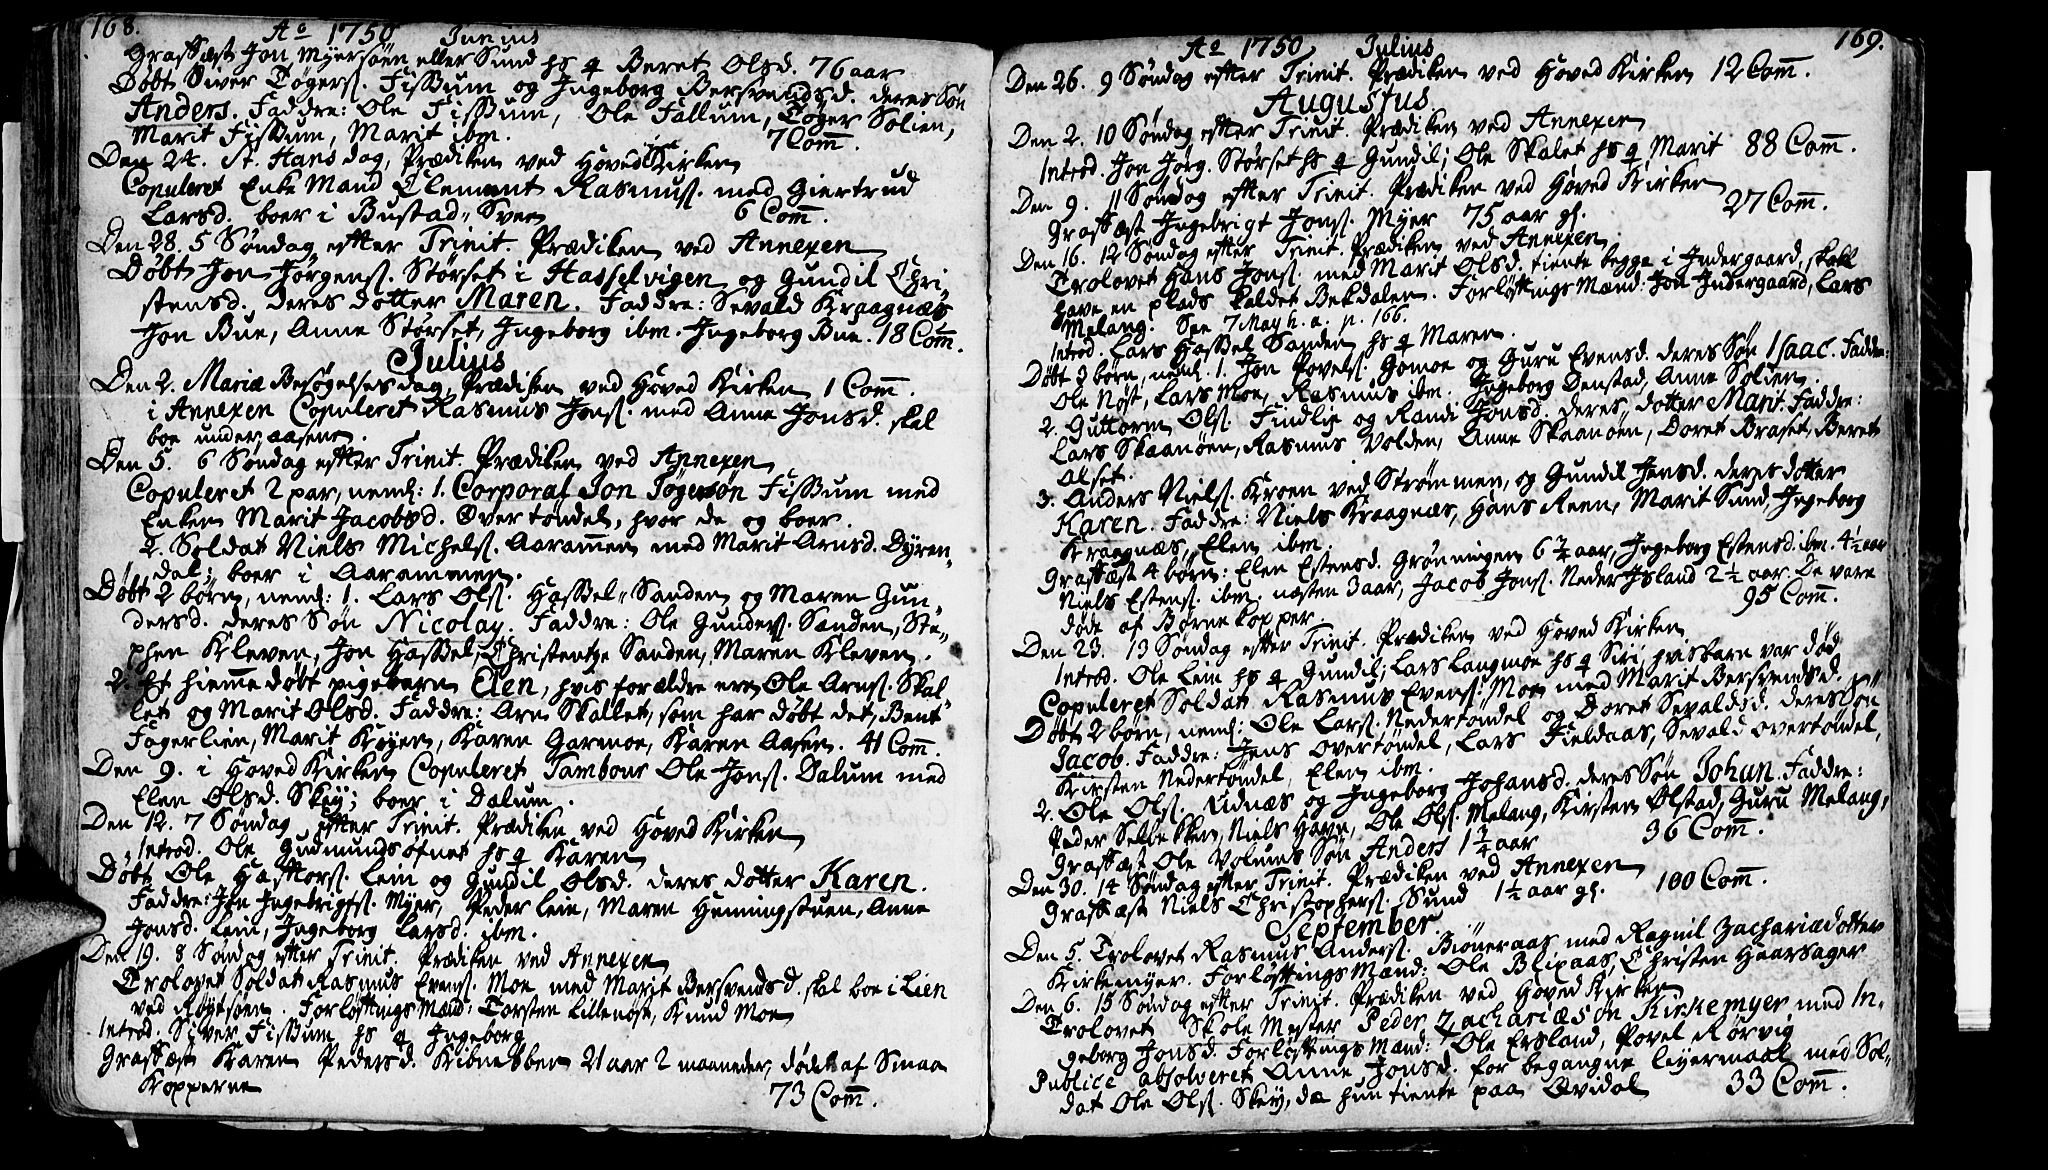 168. Ao 1750 Junius
Graffæst Jon Myersøn eller Sund hs q Beret Olsd. 76 aar
Døbt Siver Tøgers. Fissum og Ingeborg Bersvendsd. deres Søn
Anders. Faddre: Ole Fissum, Ole Fallum, Tøger Solien,
Marit Fissum, Marit ibm. 7 Com̄.
Den 24. St. Hans dag, Prædiken ved Hoved Kirken
Copuleret Enke Mand Clement Rasmuss. med Giertrud
Larsd. boer i Bustad-Sveen 6 Com̄.
Den 28. 5 Søndag efter Trinit. Prædiken ved Annexen
Døbt Jon Jørgens. Størset i Hasselvigen og Gundil Chri-
stensd. deres dotter Maren. Faddre: Sevald Kraagnæs
Jon Bue, Anne Størset, Ingeborg ibm. Ingeborg Bue. 18 Com̄.
Julius
Den 2. Mariæ Besøgelses dag, Prædiken ved Hoved Kirken 1 Com̄.
i Annexen Copuleret Rasmus Jons. med Anne Jonsd. skal
boe under aasene.
Den 5. 6 Søndag efter Trinit. Prædiken ved Annexen
Copuleret 2 par, neml: 1. Corporal Jon Tøgersøn Fissum med
Enken Marit Jacobsd. Overtøndel, hvor de og boer.
2. Soldat Niels Michels. Aarammen med Marit Arnsd. Dyren-
dal; boer i Aarammen.
Døbt 2 børn, neml: 1. Lars Ols. Hassel-Sanden og Maren Gun-
dersd. deres Søn Nicolay. Faddre: Ole Gunders. Sanden, Ste-
phen Kleven, Jon Hassel, Christentze Sanden, Maren Kleven.
2. Et hiemme døbt pigebarn Elen, hvis forældre ere Ole Arns. Skal-
let og Marit Olsd. Faddre: Arn Skallet, som har døbt det, Bent
Fagerlien, Marit Krøyen, Karen Garmoe, Karen Aasen. 41 Com̄.
Den 9. i Hoved Kirken Copuleret Tambour Ole Jons. Dalum med
Elen Olsd. Skey; boer i Dalum.
Den 12. 7 Søndag efter Trinit. Prædiken ved Hoved Kirken
Introd. Ole Gudmundsøfnet hs q Karen
Døbt Ole Hafftors. Lein og Gundil Olsd. deres dotter Karen.
Faddre: Jon Ingebrigts. Myer, Peder Lein, Maren Henningstuen, Anne
Jonsd. Lein, Ingeborg Larsd. ibm.
Den 19. 8 Søndag efter Trinit. Prædiken ved Annexen
Trolovet Soldat Rasmus Evens. Moe med Marit Bersvendsd. skal boe i Lien
ved Røytsøen. Forløftnings Mænd: Torsten Lillenøst, Knud Moe
Introd. Siver Fissum hs q Ingeborg
Graffæst Karen Pedersd. Kibnesberg 21 aar 2 maaneder, døde af Smaa
Kopperne 73 Com̄.
Ao 1750 Julius 169.
Den 26. 9 Søndag efter Trinit. Prædiken ved Hoved Kirken 12 Com̄.
Augustus
Den 2. 10 Søndag efter Trinit. Prædiken ved Annexen
Introd. Jon Jørg. Størset hs q Gundil; Ole Skalet hs q Marit 88 Com̄.
Den 9. 11 Søndag efter Trinit. Prædiken ved Hoved Kirken
Graffæst Ingebrigt Jons. Myer 75 aar gl. 27 Com̄.
Den 16. 12 Søndag efter Trinit. Prædiken ved Annexen.
Trolovet Hans Jons. med Marit Olsd. tiente begge i Indergaard, skall
have en plads kaldet Bekdalen. Forløftnings Mænd: Jon Indergaard, Lars
Melang. See 7 May h. a. p. 166.
Introd. Lars Hassel Sanden hs q Maren.
Døbt 3 børn, neml. 1. Jon Povels. Gomoe og Guru Evensd. deres Søn Isaac. Faddre:
Ole Nøst, Lars Moe, Rasmus ibm. Ingeborg Denstad, Anne Solien.
2. Guttorm Ols. Findlie og Randi Jonsd. deres dotter Marit. Faddre:
Lars Skaanøen, Rasmus Volden, Anne Skaanøen, Doret Braset, Beret
Olset.
3. Anders Niels. Kroen ved Strømmen, og Gundil Jonsd. deres dotter
Karen. Faddre: Niels Kraagnæs, Hans Reen, Marit Sund, Ingeborg
Kraagnæs, Elen ibm.
Graffæst 4 børn: Elen Estensd. Grønningen 6 3/4 aar, Ingeborg Estensd. ibm. 4½ aar
Niels Estens. ibm. næsten 3 aar, Jacob Jons. Neder Island 2½ aar. De vare
døde af Børnekopper 95 Com̄.
Den 23. 13 Søndag efter Trinit. Prædiken ved Hoved Kirken
Introd. Ole Lein hs q Gundil, Lars Langmoe hs q Siri, hvis barn var død
Copuleret Soldat Rasmus Evens: Moe med Marit Bersvendsd.
Døbt 2 børn, neml: Ole Lars. Nedertøndel og Doret Sevaldsd. deres Søn
Jacob. Faddre: Jens Overtøndel, Lars Fieldaas, Sevald Overtøndel,
Kirsten Nedertøndel, Elen ibm.
2. Ole Ols. Udnæs og Ingeborg Johansd. deres Søn Johan. Faddre:
Peder Selbekken, Niels Havn, Ole Ols. Melang, Kirsten Ølstad, Guru Melang,
Graffæst Ole Volums Søn Anders 1 3/4 aar 36 Com̄.
Den 30. 14 Søndag efter Trinit. Prædiken ved Annexen
Graffæst Niels Christophers. Sund 1½ aar gl. 100 Com̄.
September.
Den 5. Trolovet Rasmus Anders. Biøneraas med Ragnil Zachariædotter
Kirkemyer. Forløftnings Mænd: Ole Blixaas, Christen Haarsager
Den 6. 15 Søndag efter Trinit. Prædiken ved Hoved Kirken
Trolovet Skole Mester Peder Zachariæsøn Kirkemyer med In-
geborg Jonsd. Forløftnings Mænd: Ole Ersland, Povel Rørvig
Publice absolveret Anne Jonsd. for begangne leyermaal med Sol-
dat Ole Ols. Skey, da hun tiente paa Qvidal 33 Com̄.